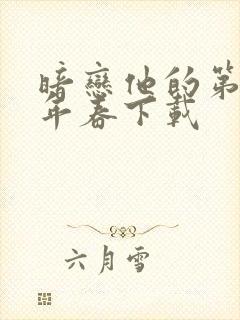 暗戀他的第
年春下載
六月雪